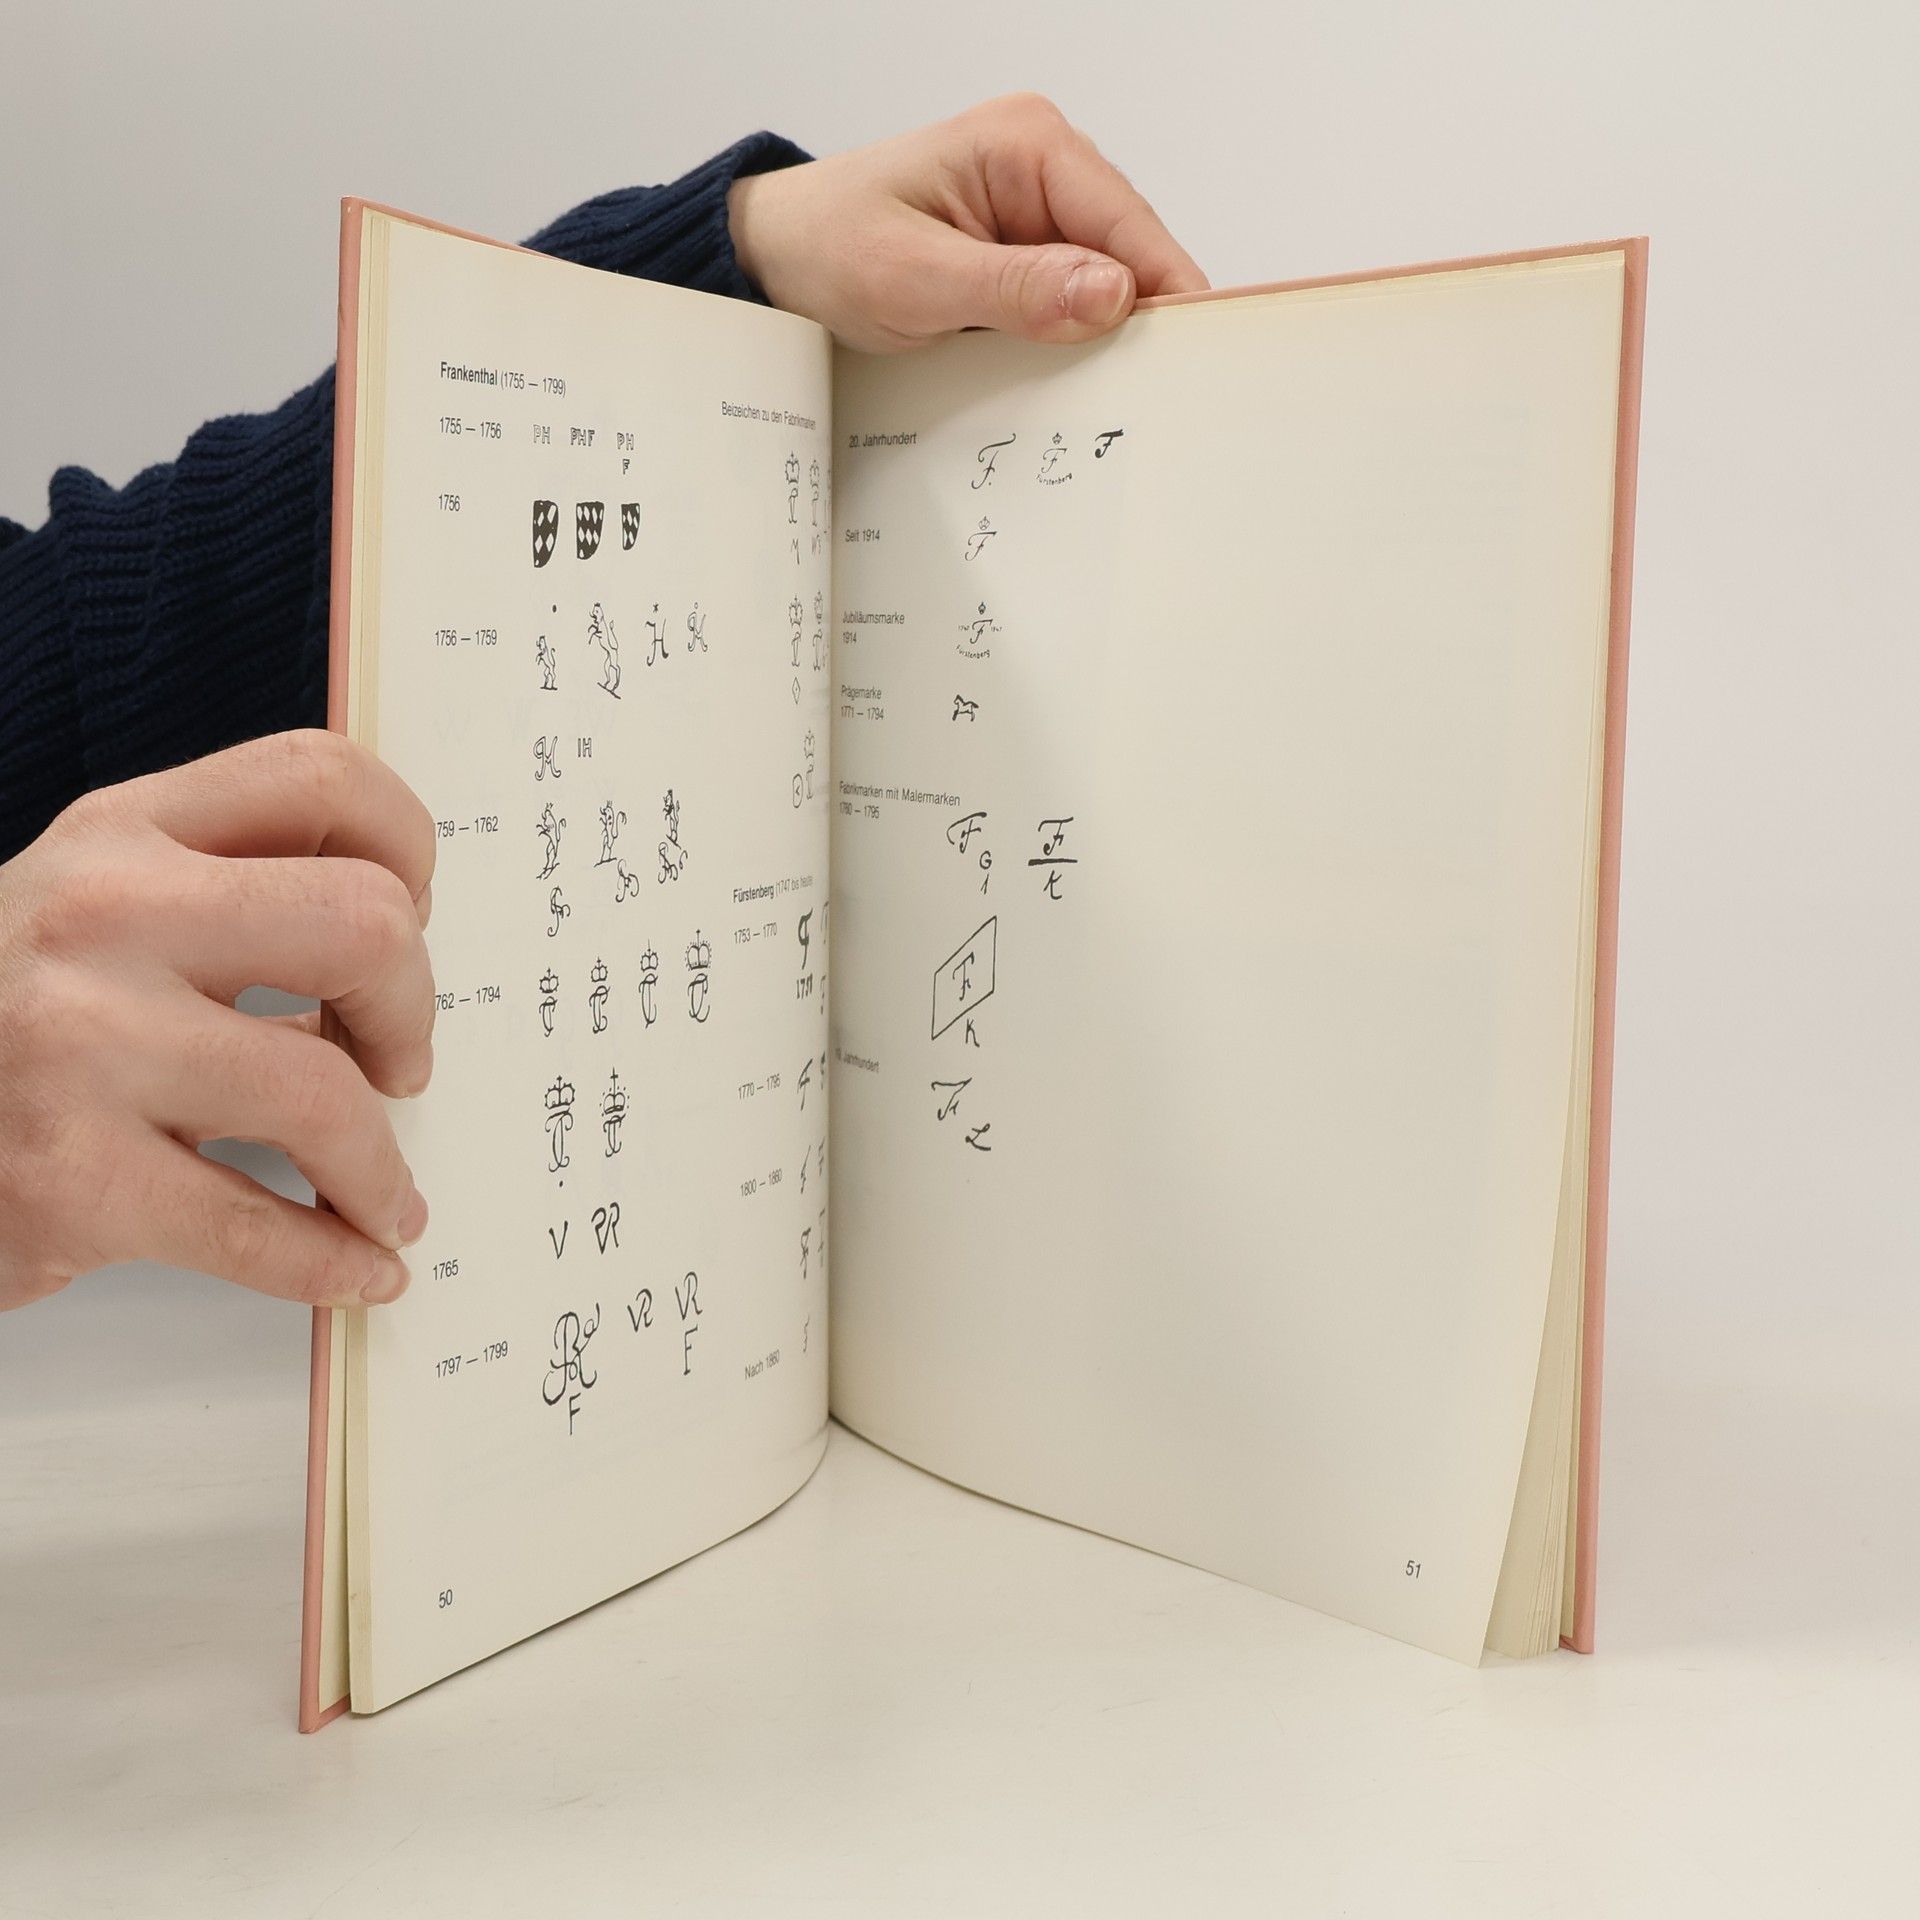 Frankenthal (1755 — 1799)
1755 — 1756 PH PHF PH
F
1756
1756 — 1759
IH
759 — 1762
762 — 1794
1765 V
1797 — 1799 VR VR
F
F
50
Beizeichen zu den Fabrikmarken
M
Fürstenberg (1747 bis heute
1753 — 1770
1770 — 1795
1800 — 1860
Nach 1860
20. Jahrhundert F. F F
Fürstenberg
Seit 1914 F
Jubiläumsmarke
1914
1747 F 1947
Fürstenberg
Prägemarke
1771 — 1794
Fabrikmarken mit Malermarken
1760 — 1795
F F
G
1
K
F
K
Jahrhundert
F
L
51